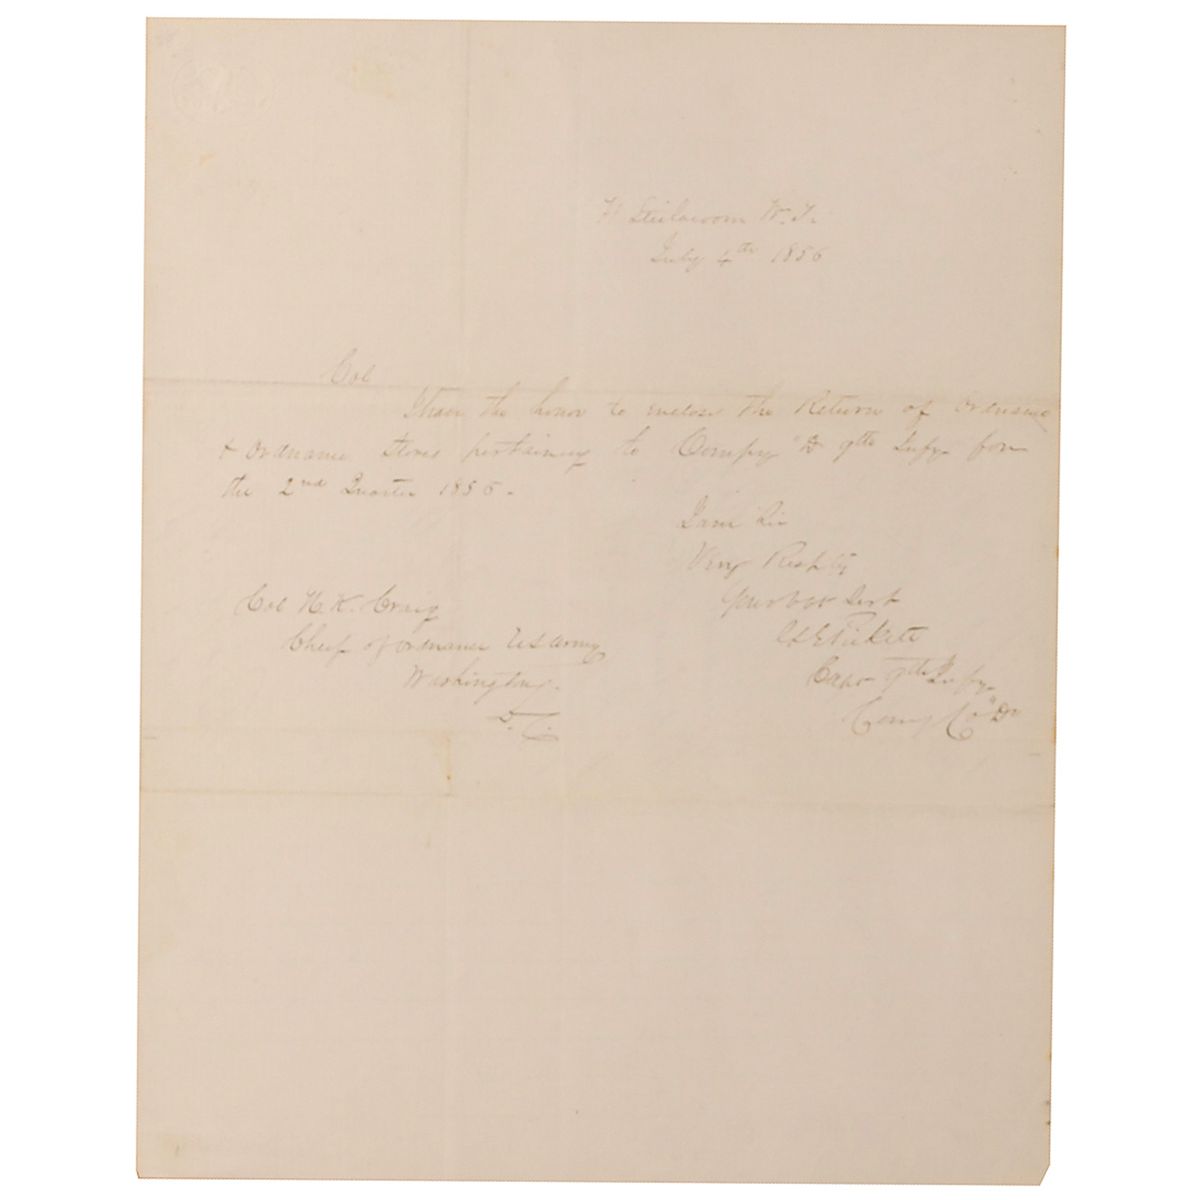 Ft Steilacoom W. T.
July 4th 1856
Col
I have the honor to enclose the Return of Ordnance
& Ordnance Stores pertaining to Compy "D" 9th Infy for
the 2nd Quarter 1856.
I am Sir
Very Respty
Your obt Servt
G E Pickett
Capt 9th Infy
Comg Co "D"
Col H. K. Craig
Chief of Ordnance U S Army
Washington
D. C.